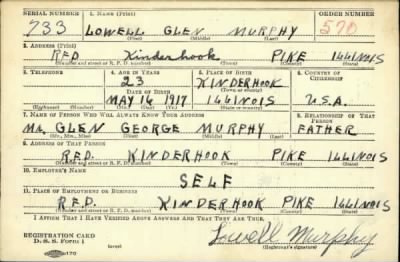 SERIAL NUMBER 1. NAME (Print) ORDER NUMBER
733 LOWELL GLEN MURPHY 570
(First) (Middle) (Last)
2. ADDRESS (Print)
RFD Kinderhook PIKE ILLINOIS
(Number and street or R. F. D. number) (Town) (County) (State)
3. TELEPHONE 4. AGE IN YEARS 5. PLACE OF BIRTH 6. COUNTRY OF CITIZENSHIP
23 KINDERHOOK
DATE OF BIRTH (Town or county)
MAY 16 1917 ILLINOIS U.S.A.
(Exchange) (Number) (Mo.) (Day) (Yr.) (State or country)
7. NAME OF PERSON WHO WILL ALWAYS KNOW YOUR ADDRESS 8. RELATIONSHIP OF THAT PERSON
Mr. GLEN GEORGE MURPHY FATHER
(Mr., Mrs., Miss) (First) (Middle) (Last)
9. ADDRESS OF THAT PERSON
RFD. KINDERHOOK PIKE ILLINOIS
(Number and street or R. F. D. number) (Town) (County) (State)
10. EMPLOYER'S NAME
SELF
11. PLACE OF EMPLOYMENT OR BUSINESS
R.F.D. KINDERHOOK PIKE ILLINOIS
(Number and street or R. F. D. number) (Town) (County) (State)
I AFFIRM THAT I HAVE VERIFIED ABOVE ANSWERS AND THAT THEY ARE TRUE.
REGISTRATION CARD Lowell Murphy
D. S. S. Form 1 (over) (Registrant's signature)